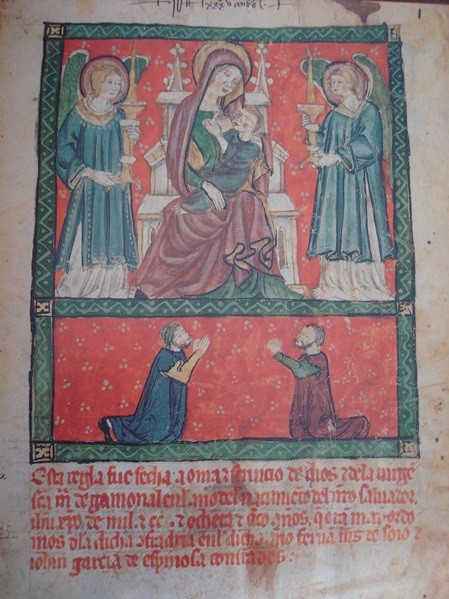 lxxxv
Esta regla fue fecha a onrra & seruicio de dios & dela uirgē
scā mͣ de gamonal enl año del nacimiēto del nro saluador
ihu xpo. de mil. & ccc. & ochēta & çīco. años, q erā mayordo
mos dla dicha ɔfradria enl dicho año ferrnā mīs de soto &
iohn garcia de espinosa confrades.